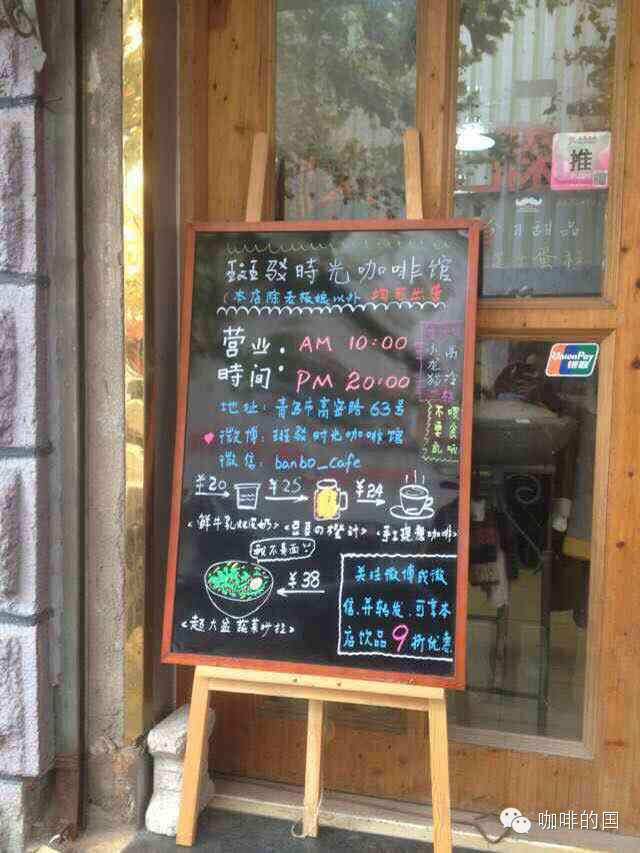 斑駁時光咖啡馆
(本店除老板娘以外 均可出售
营业: AM 10:00
時間: PM 20:00
地址: 青岛市高安路63号
微博: 斑駁时光咖啡馆
微信: banbo_cafe
不要喂食
¥20 ¥25 ¥24
<鲜牛乳炖皮奶> <夏の橙汁> <手工提憩咖啡>
我不是面
¥38
<超大盆蔬菜沙拉>
关注微博或微
信,并转发,可享本
店饮品9折优惠
推
UnionPay
银联
咖啡的国